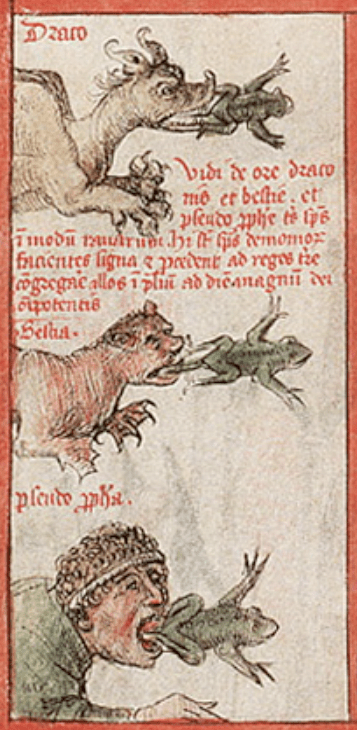 Draco
Vidi de ore draco
nis et bestie et
pseudo pphe ts sps
ī modū ranarum. Hi st sps demonioꝝ
facientes signa ⁊ pcedent ad reges tre
cōgregare illos ī pliū ad diē magnū dei
oīpotentis
Bestia.
pseudo ppha.